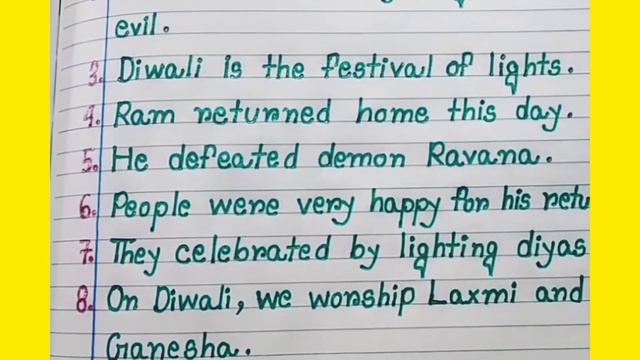 evil.
3. Diwali is the festival of lights.
4. Ram returned home this day.
5. He defeated demon Ravana.
6. People were very happy for his retu
7. They celebrated by lighting diyas
8. On Diwali, we worship Laxmi and
Ganesha.